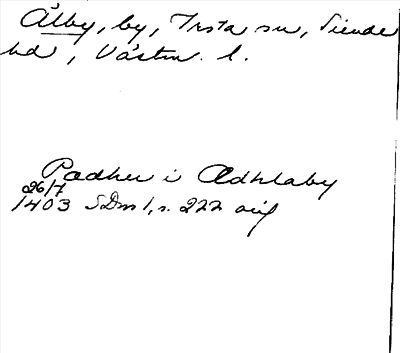 Älby, by, Irsta sn, Siende
hd, Västm. l.
Padher i Ædhlaby
26/7
1403 SDns 1, s. 222 avs